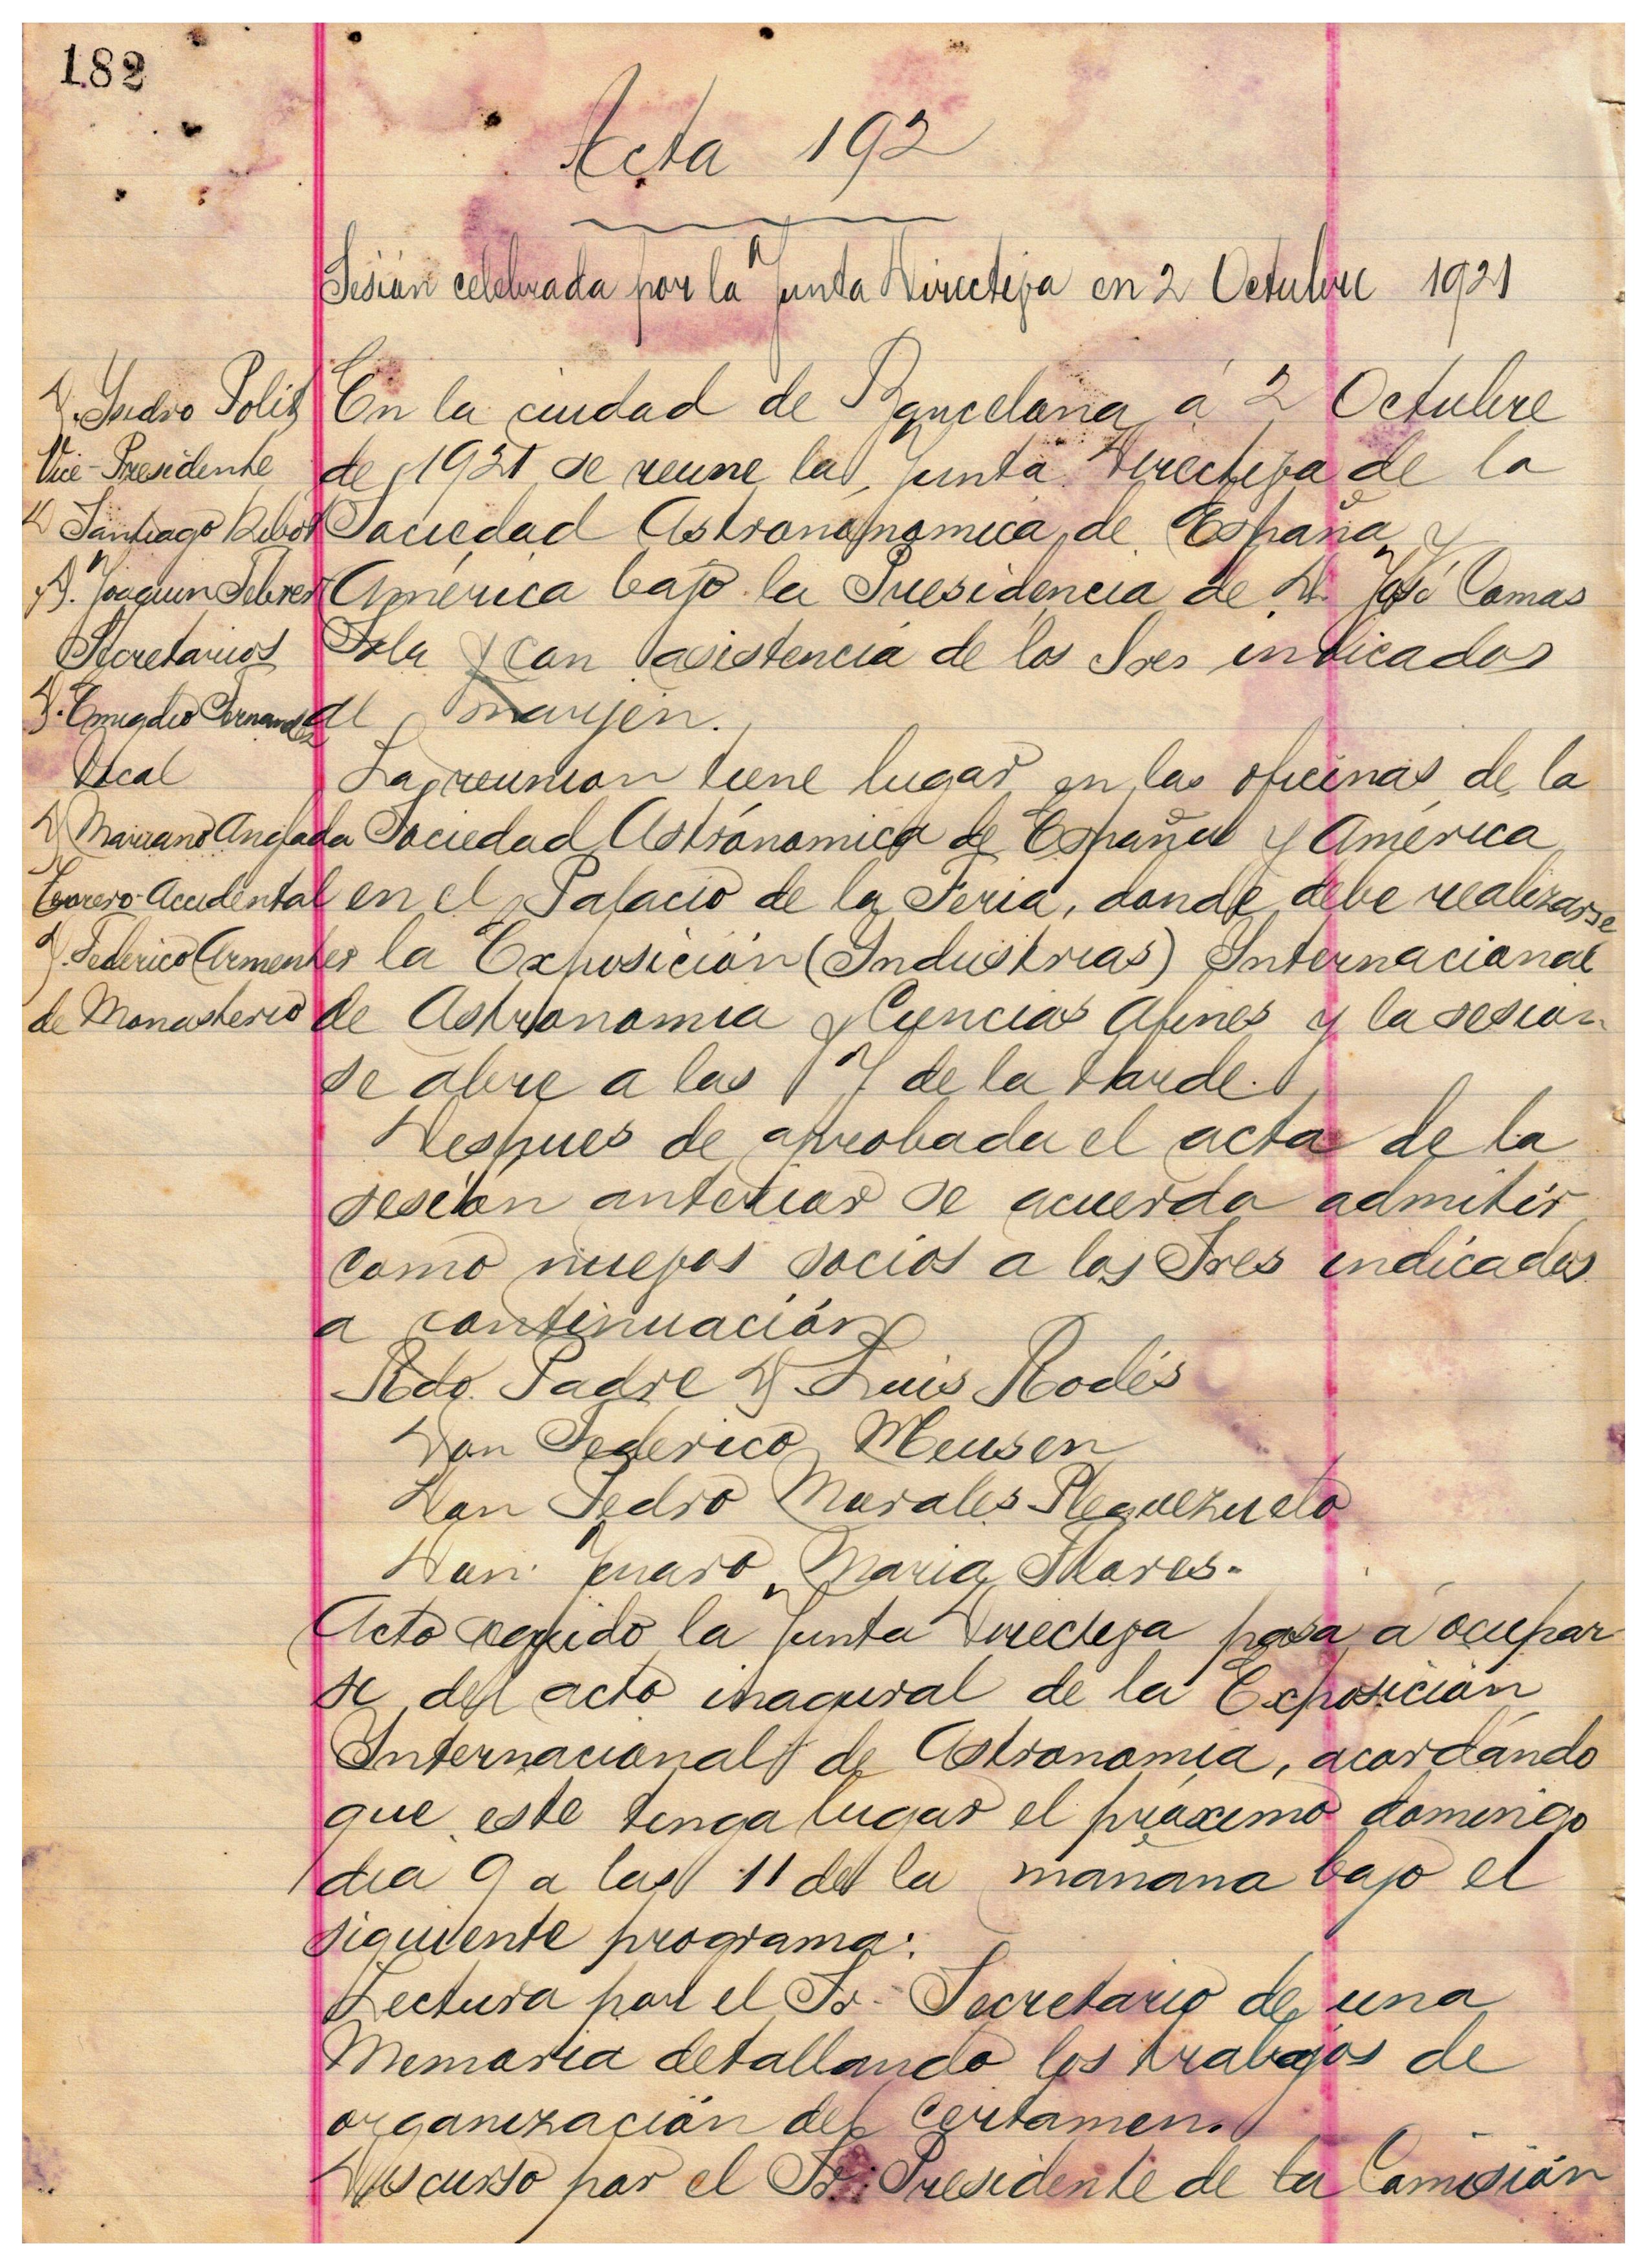 182
Acta 192
Sesión celebrada por la Junta Directiva en 2 Octubre 1921
D. Isidro Pólit
Vice-Presidente
D Santiago Ribot
D. Joaquin Febrer
Secretarios
D. Emigdio Fernandez
Vocal
D Mariano Anglada
Tesorero-Accidental
D. Federico Armenter
de Monasterio
En la ciudad de Barcelona á 2 Octubre
de 1921 se reune la Junta Directiva de la
Sociedad Astrononomica de España y
América bajo la Presidencia de D. José Comas
Sola y con asistencia de los Sres indicados
al marjen.
La reunion tiene lugar en las oficinas de la
Sociedad Astrónomica de España y América
en el Palacio de la Feria, donde debe realizarse
la Exposición (Industrias) Internacional
de Astronomia y Ciencias Afines y la sesion
se abre a las 7 de la tarde.
Despues de aprobada el acta de la
sesión anterior se acuerda admitir
como nuevos socios a los Sres indicados
a continuación
Rdo. Padre D. Luis Rodés
Don Federico Meusen
Don Pedro Morales Pleguezuelo
Don Jenaro Maria Flores.
Acto seguido la Junta Directiva pasa á ocupar
se del acto inagural de la Exposición
Internacional de Astronomia, acordándo
que este tenga lugar el próximo domingo
dia 9 a las 11 de la mañana bajo el
siguiente programa:
Lectura por el Sr. Secretario de una
Memoria detallando los trabajos de
organización del Certamen.
Discurso por el Sr. Presidente de la Comisión